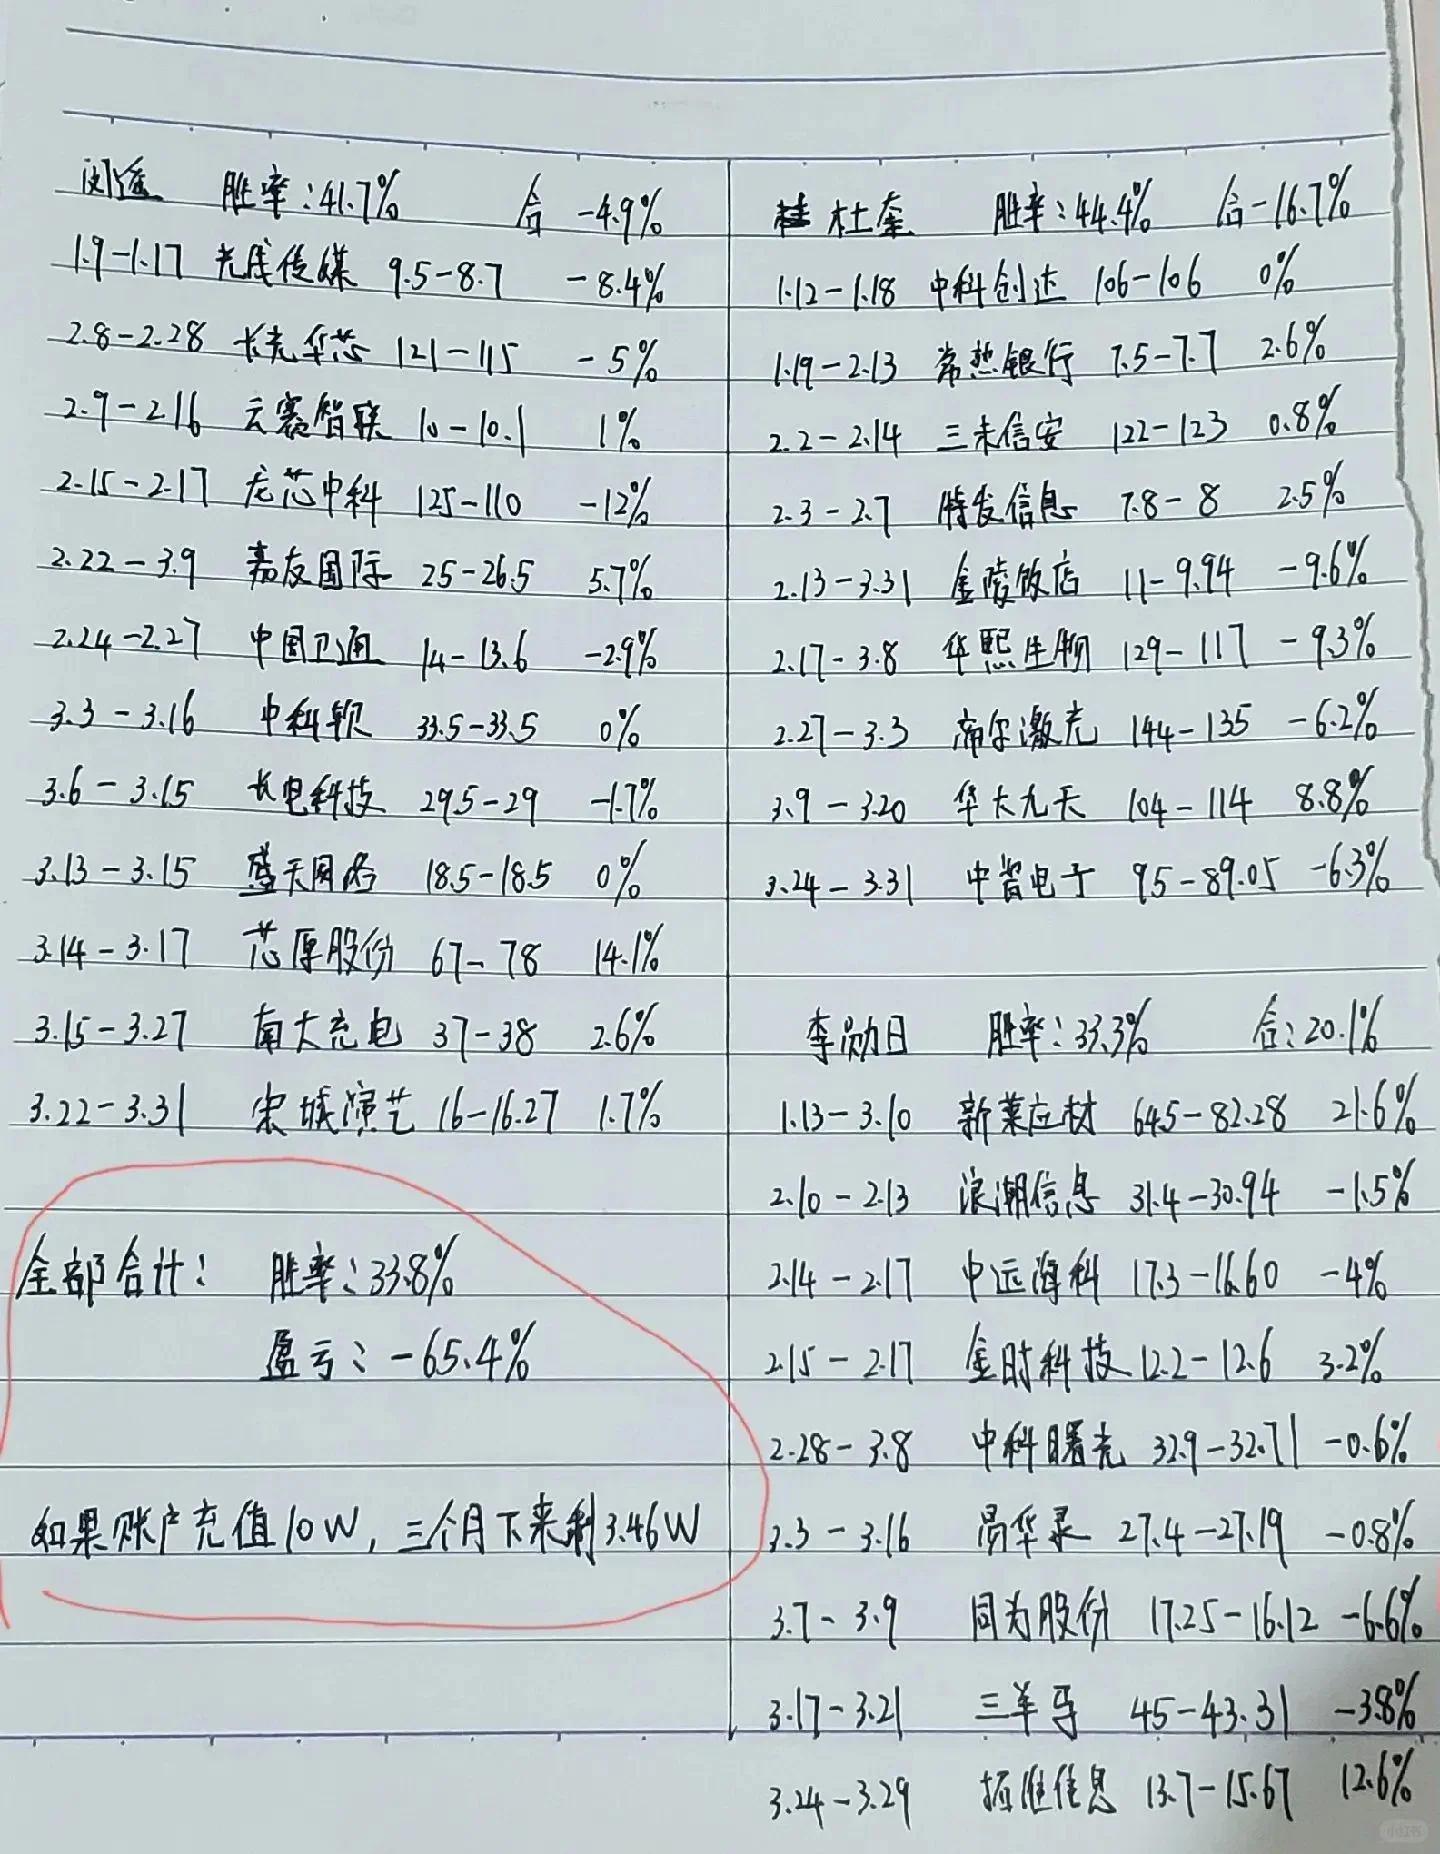 闵遥 胜率:41.7% 合 -4.9%
1.9-1.17 光线传媒 9.5-8.7 -8.4%
2.8-2.28 长光华芯 121-115 -5%
2.9-2.16 云赛智联 10-10.1 1%
2.15-2.17 龙芯中科 125-110 -12%
2.22-3.9 嘉友国际 25-26.5 5.7%
2.24-2.27 中国卫通 14-13.6 -2.9%
3.3-3.16 中科软 33.5-33.5 0%
3.6-3.15 长电科技 29.5-29 -1.7%
3.13-3.15 盛天网络 18.5-18.5 0%
3.14-3.17 芯原股份 67-78 14.1%
3.15-3.27 南大光电 37-38 2.6%
3.22-3.31 宋城演艺 16-16.27 1.7%
全部合计: 胜率:33.8%
盈亏:-65.4%
如果账户充值10W,三个月下来剩3.46W
杜奎 胜率:44.4% 合-16.7%
1.12-1.18 中科创达 106-106 0%
1.19-2.13 常熟银行 7.5-7.7 2.6%
2.2-2.14 三未信安 122-123 0.8%
2.3-2.7 特发信息 7.8-8 2.5%
2.13-3.31 金陵饭店 11-9.94 -9.6%
2.17-3.8 华熙生物 129-117 -9.3%
2.27-3.3 帝尔激光 144-135 -6.2%
3.9-3.20 华大九天 104-114 8.8%
3.24-3.31 中瓷电子 95-89.05 -6.3%
李勋日 胜率:33.3% 合:20.1%
1.13-3.10 新莱应材 64.5-82.28 21.6%
2.10-2.13 浪潮信息 31.4-30.94 -1.5%
2.14-2.17 中远海科 17.3-16.60 -4%
2.15-2.17 金时科技 12.2-12.6 3.2%
2.28-3.8 中科曙光 32.9-32.71 -0.6%
3.3-3.16 易华录 27.4-27.19 -0.8%
3.7-3.9 同为股份 17.25-16.12 -6.6%
3.17-3.21 三羊马 45-43.31 -3.8%
3.24-3.29 拓维信息 13.7-15.67 12.6%
小红书